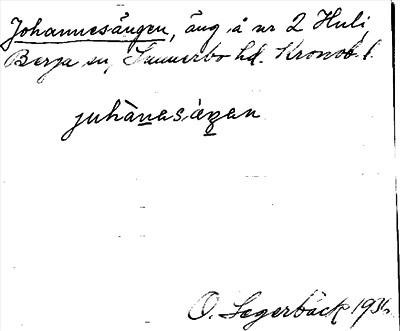 Johannesängen, äng å nr 2 Huli,
Berga sn, Sunnerbo hd. Kronob. l.
juhànesæ̀ŋen
O. Lagerbäck 1936.